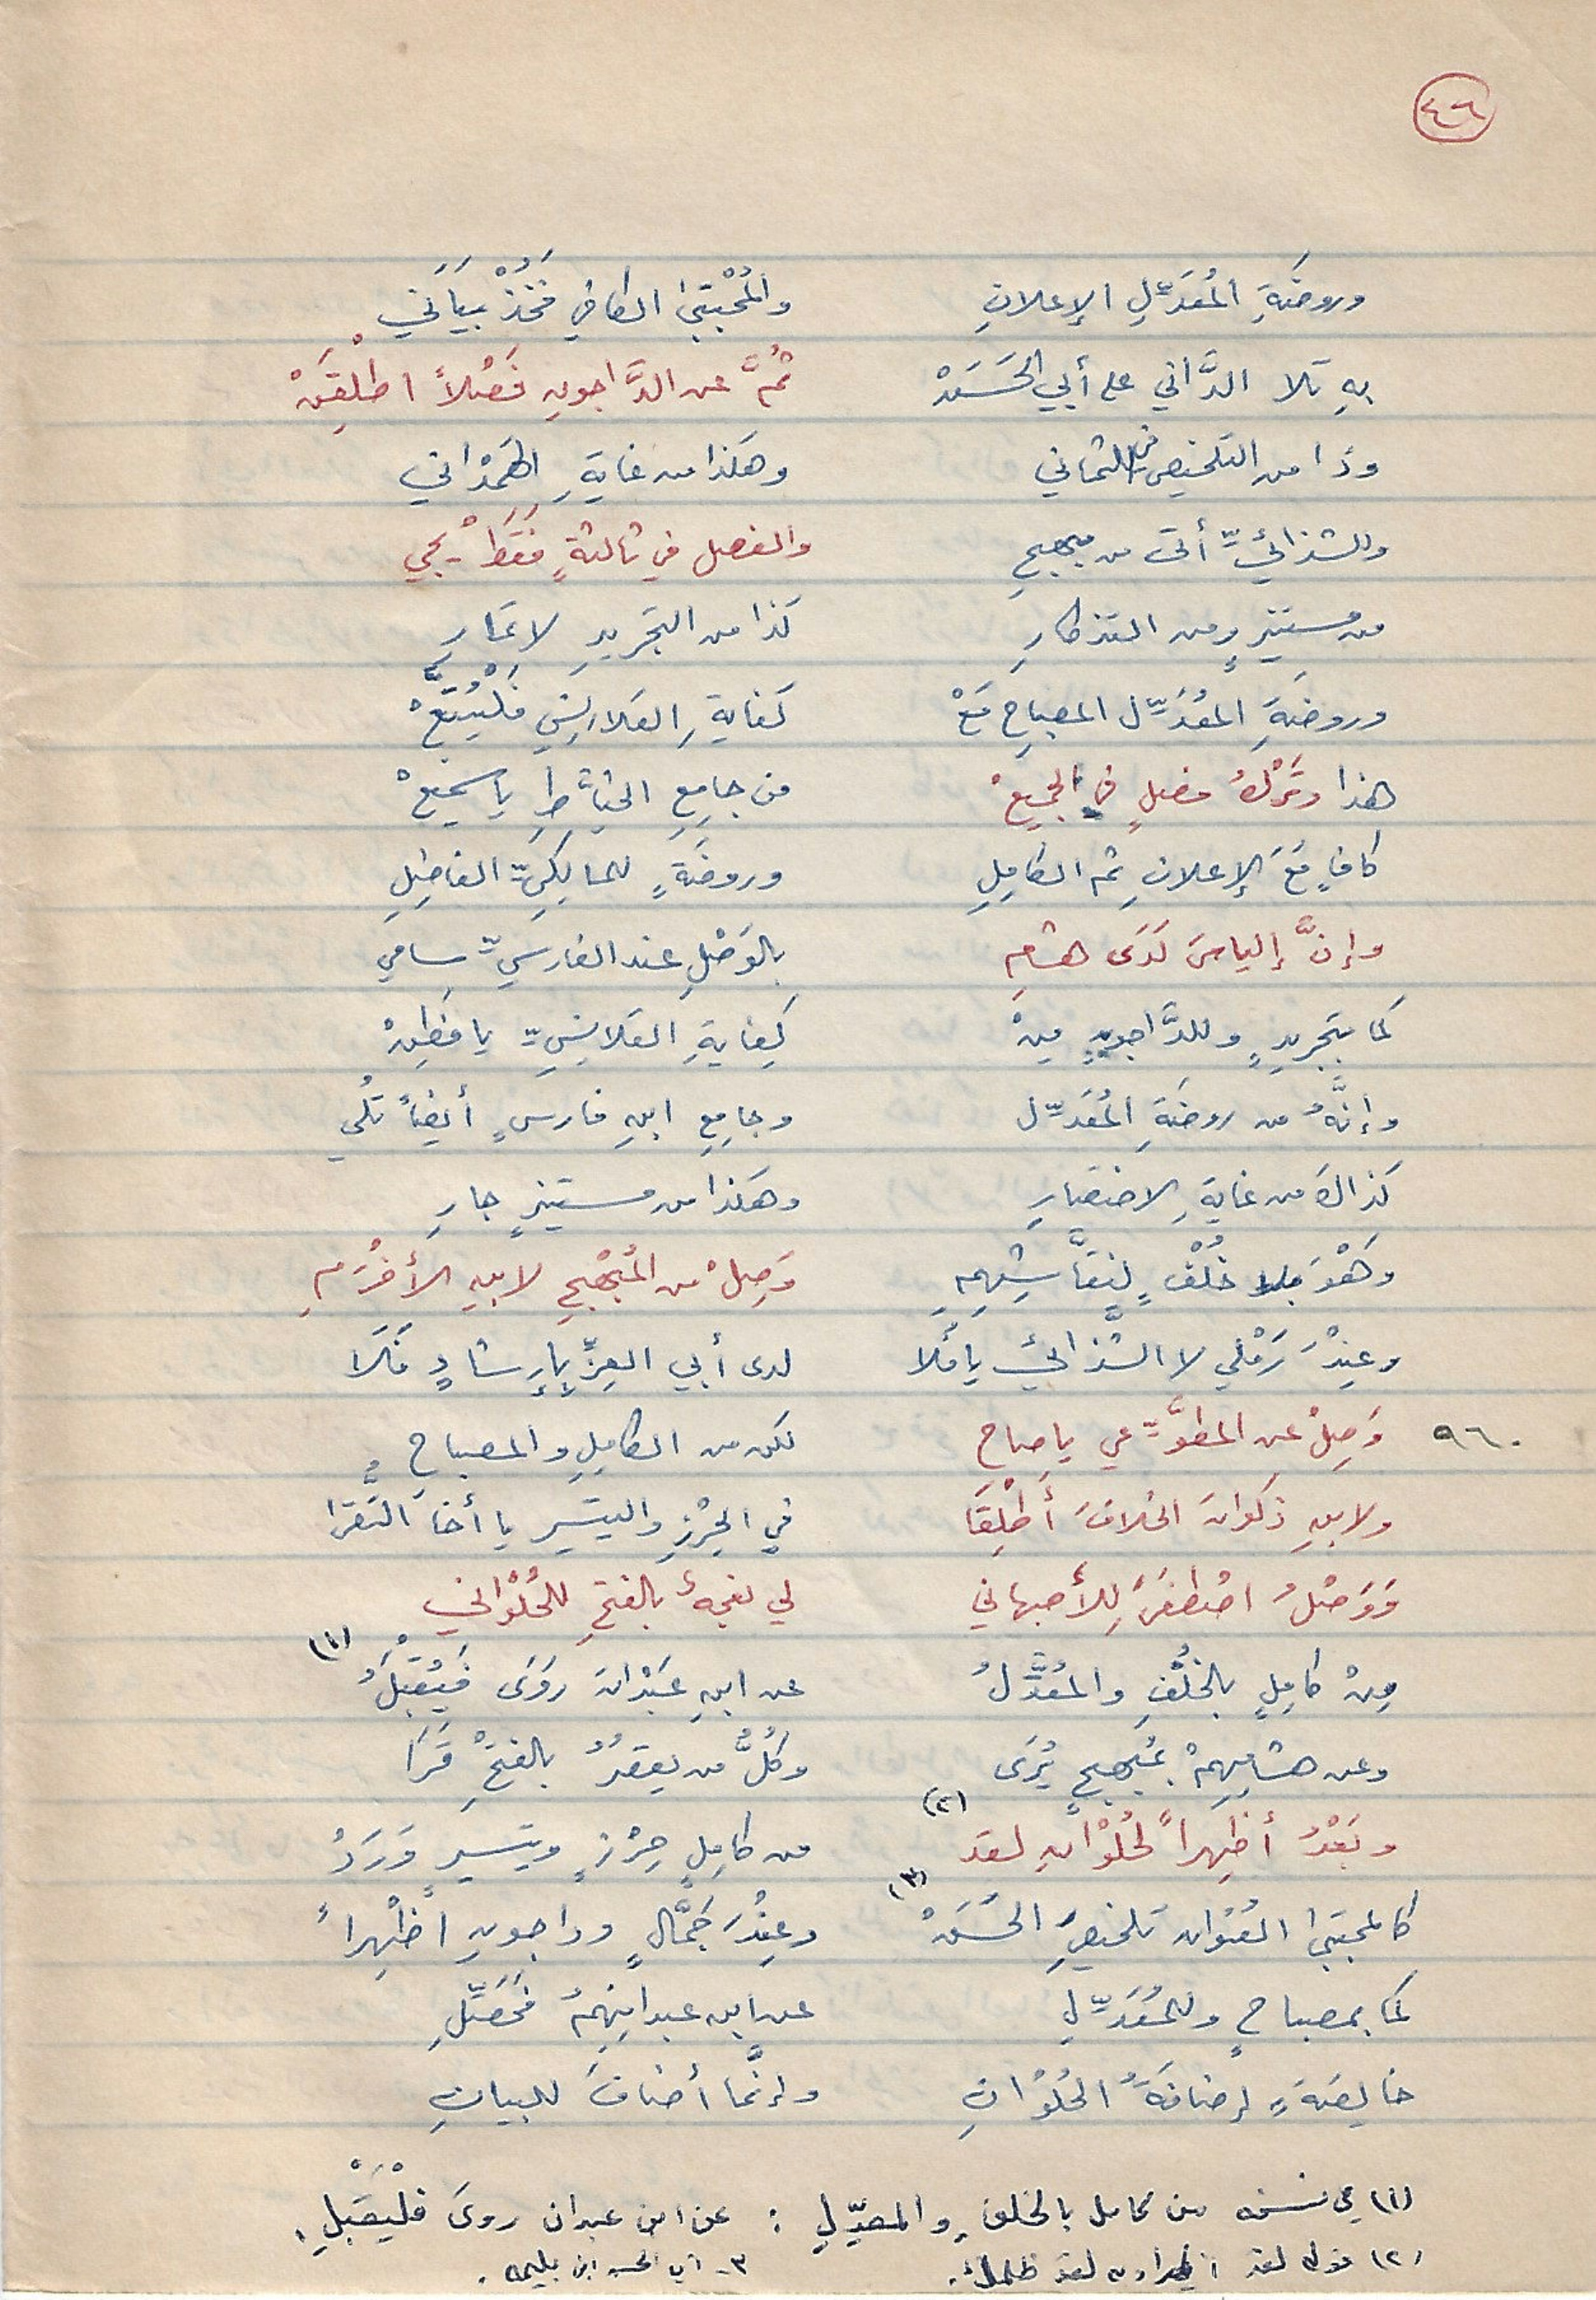 ٤٦
وروضَةِ المُعَدِّلِ الإعلانِ والمُجْتبىٰ الكافي فَخُذْ بَيَاني
بهِ تلا الدَّاني على أبي الحَسَنْ ثُمَّ عن الدَّاجوني فَصْلاً اطْلِقَنْ
وذا من التلخيص للثماني وهكذا من غايةِ الهَمْداني
وللشذائيِّ أتى من مبهجِ والفصل في ثالثةٍ فَقَطْ يجي
من مستنيرٍ ومن التذكارِ كذا من التجريدِ لا تمارِ
وروضةِ المُعَدِّل المصباحِ مَعْ كفايةِ القلانِسي فَلْيُتَّبَعْ
هذا وتَرْكُ فصلٍ في الجميعْ من جامعِ الخيَّاطِ يا سميعْ
كافٍ مَعَ الإعلانِ ثم الكامِلِ وروضَةٍ للمالِكِيِّ الفاضِلِ
وإنَّ إلياسَ لَدَى هشامِ بالوَصْلِ عند الفارسيِّ سامي
كما بتجريدٍ وللدَّاجوني مِنْ كِفايةِ القلانِسِيِّ يا فَطِنْ
وإنَّهُ من روضةِ المُعَدِّل وجامِعِ ابنِ فارسٍ أيضاً تُلي
كذاكَ من غايةِ الاختصارِ وهكذا من مستنيرٍ جارِ
وَهْوَ بلا خُلْفٍ لنَقَّاشِهِمِ وَصِلْ من المُبْهِجِ لابنِ الأخْرَمِ
وعِنْدَ رَمْلي لا الشذائيْ يا فُلا لدى أبي العِزِّ بإرشادٍ فَلا
٩٦٠ وَصِلْ عن المطوَّعي يا صاحِ لكن من الكامِلِ والمصباحِ
ولابنِ ذكوانَ الخلافَ أَطْلِقَا في الحِرْزِ والتيسيرِ يا أخا التُّقى
وَوَصْلُ اصْطفَى لِلأصبهاني لي نعجةٌ بالفتحِ للحُلْواني
مِنْ كامِلٍ بالخُلْفِ والمُعَدِّلُ عن ابنِ عَبْدانَ رَوَى فَيُقْبَلُ (١)
وعن هشامِهِمْ بمُبهجٍ يُرَى وكُلُّ من يقصُرُ بالفتحِ قَرَا
وبَعْدُ أظهِراً لحُلْوانِ لقد (٢) من كامِلٍ حِرْزٍ وتيسيرٍ وَرَدْ
كالمجتبىٰ العنوان تلخيصِ الحَسَنْ (٣) وعِنْدَ جَمَّالٍ وداجوني اظْهِراً
كما بمصباحٍ وللمُعَدِّلِ عن ابن عبدانِهِمُ فَحَصِّلِ
خالِصَةٍ إضافَةُ الحُلْوانِ وإنَّما أضافَ للبيانِ
(١) في نسخه من كامل بالخلفِ والمعدِّلِ : عن ابن عبدان روىَ فلْيُقْبَلِ.
(٢) قوله لقد لقد ظلمك.
٣- أبي الحسن ابن بليمه.